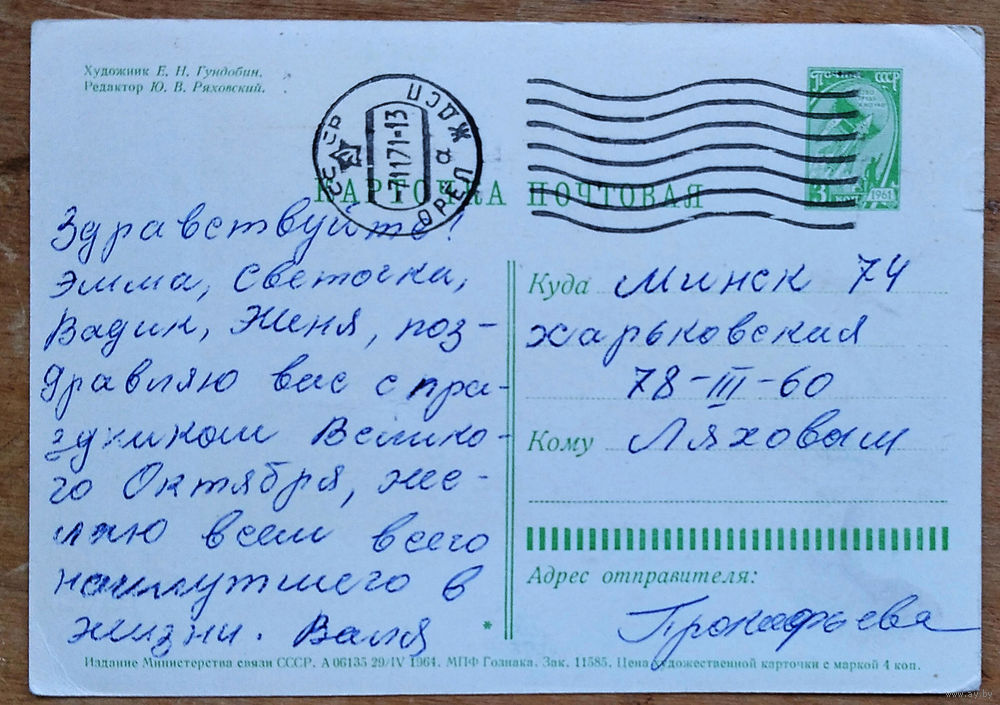 Художник Е. Н. Гундобин.
Редактор Ю. В. Ряховский.
СССР
-71171-13
ОРЕЛ а ЖДСП
ПОЧТА СССР
3 КОП
1961
КАРТОЧКА ПОЧТОВАЯ
Здравствуйте!
Эмма, Светочка,
Вадик, Женя, поз-
дравляю вас с пра-
здником Велико-
го Октября, же-
лаю всем всего
наилутшего в
жизни. Валя
Куда Минск 74
Харьковская
78-III-60
Кому Ляховым
Адрес отправителя:
Прокафьева
*
Издание Министерства связи СССР. А 06135 29/IV 1964. МПФ Гознака. Зак. 11585. Цена художественной карточки с маркой 4 коп.
www.ay.by